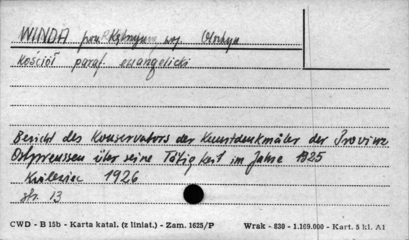 WINDA pow. Kętrzyn woj. Olsztyn
Kościół paraf. ewangelicki
Bericht des Konservators der Kunstdenkmäler der Provinz
Ostpreussen über seine Tätigkeit im Jahre 1925
Królewiec 1926
str. 13
CWD - B 15b - Karta katal. (z liniat.) - Zam. 1625/P Wrak - 830 - 1.169.000 - Kart. 5 kl. A1